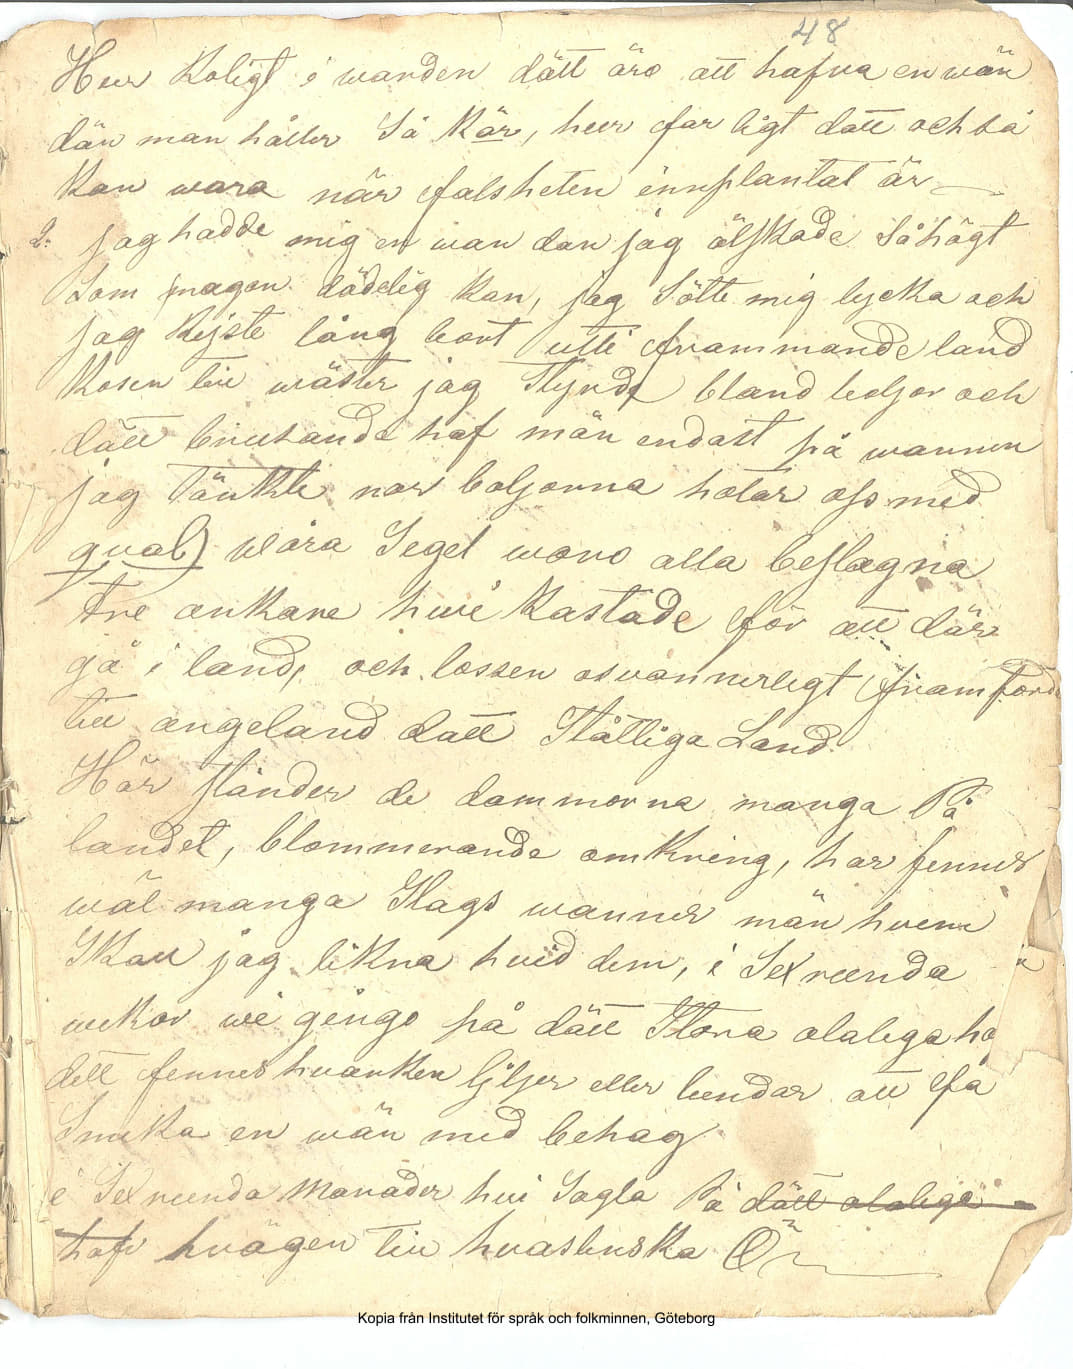 48
Hur Roligt i warden dätt äro att hafva en wän
dän man håller Så Kär, hur farligt dätt också
kan wara när falsheten innplantat är
2. jag hadde mig en wän dän jag älskade Så högt
Som nagon dödelig kan, jag Sötte mig lycka och
jag Rejste lång bort utti frammande land
Kosen till wäster jag Stynde bland boljor och
dätt brusande haf män endast på wannen
jag Tänkte nar boljorna hotar oss med
qval) wåra Segel woro alla beslagna
tre ankare hwi Kastade för att där
gå i land, och lossen osvannerligt framförd
till angeland dätt Ståtliga Land.
Här fländer de dammorna manga På
landet, blommerande omkring, har fennes
wäl manga Slags wanner män hvem
Skall jag likna hvid dem, i Sexrunda
wekor wi gingo på dätt Stora olaliga ha
dett fennes hvarken liljer eller lundar att få
Smeka en wän med behag
i Sexrunda Manader hvi Sagla På dätt olaliga
haf hvägen till hvaslinska Ön
Kopia från Institutet för språk och folkminnen, Göteborg